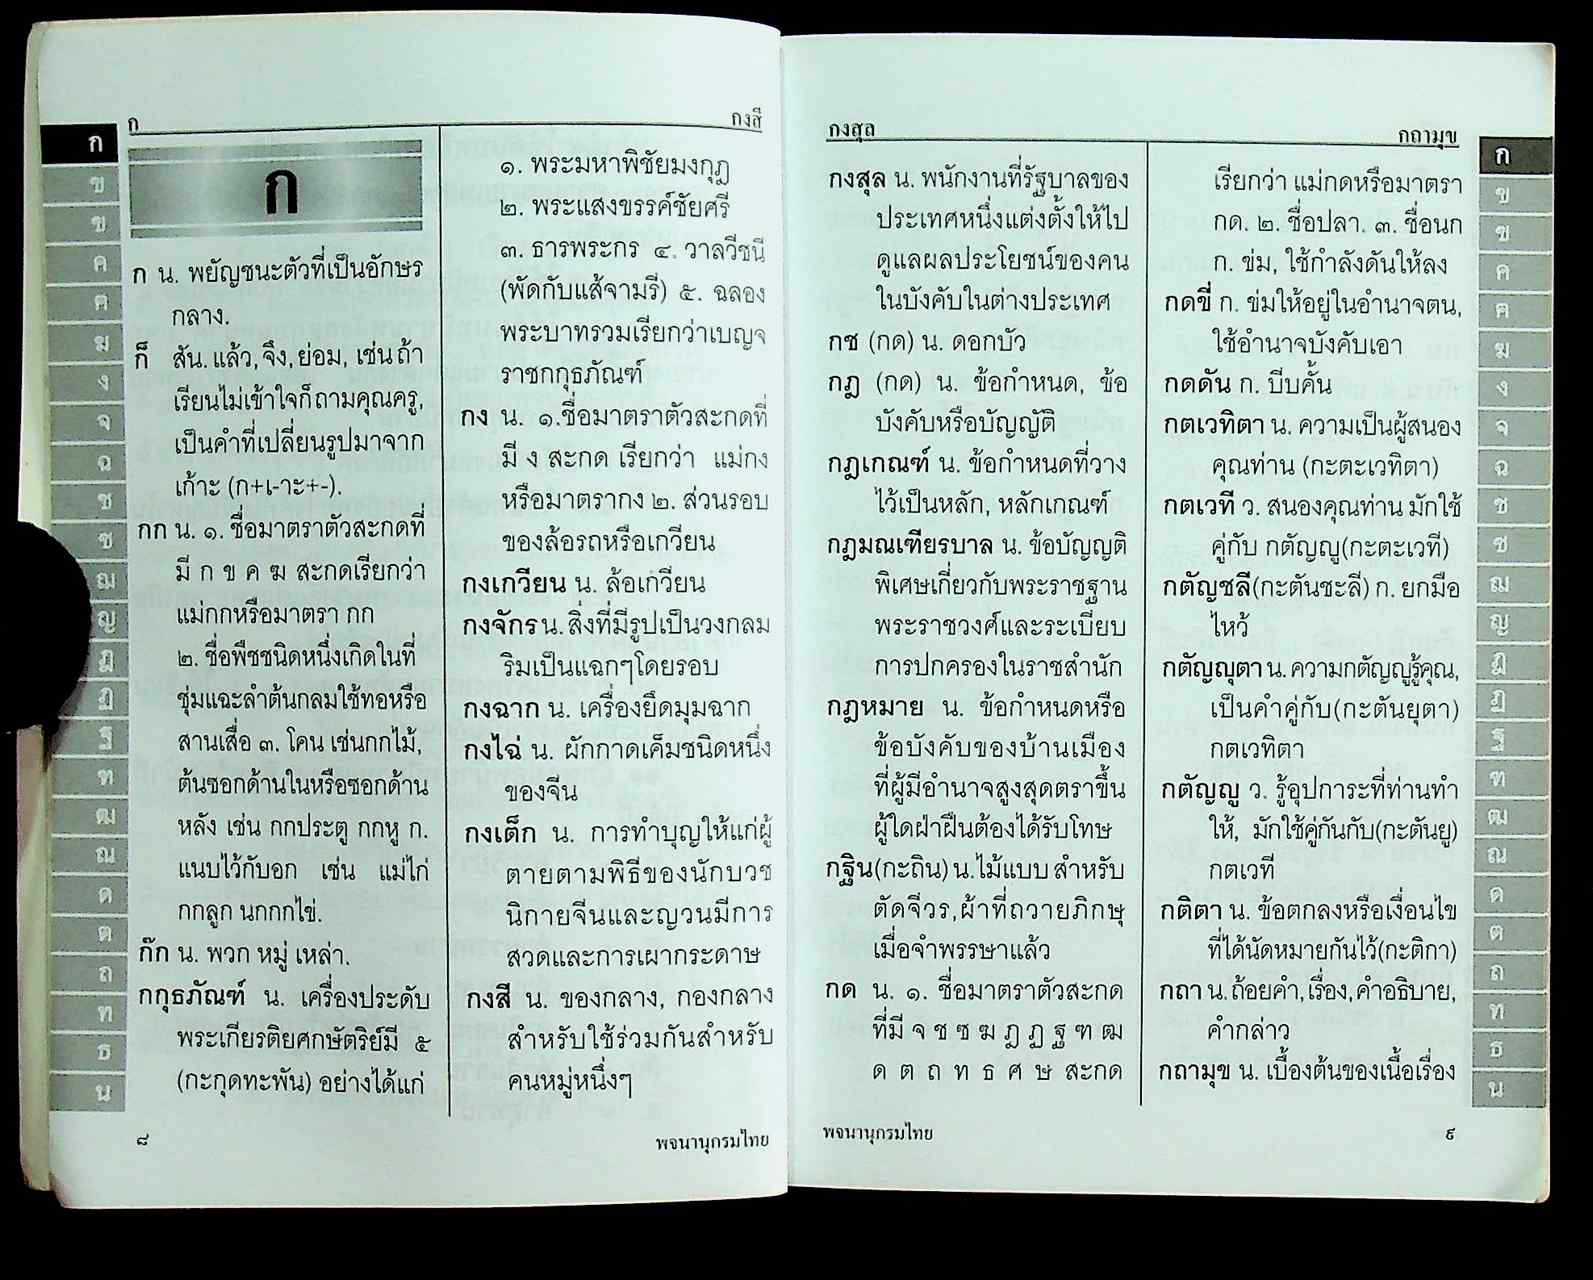 ก
กงสี
ก
ก น. พยัญชนะตัวที่เป็นอักษร
กลาง.
ก็ สัน. แล้ว, จึง, ย่อม, เช่น ถ้า
เรียนไม่เข้าใจก็ ถามคุณครู,
เป็นคำที่เปลี่ยนรูปมาจาก
เก้าะ (ก+เ-าะ+-้).
กก น. ๑. ชื่อมาตราตัวสะกดที่
มี ก ข ค ฆ สะกดเรียกว่า
แม่กกหรือมาตรา กก
๒. ชื่อพืชชนิดหนึ่งเกิดในที่
ชุ่มแฉะลำต้นกลมใช้ทอหรือ
สานเสื่อ ๓. โคน เช่นกกไม้,
ต้นซอกด้านในหรือซอกด้าน
หลัง เช่น กกประตู กกหู ก.
แนบไว้กับอก เช่น แม่ไก่
กกลูก นกกกไข่.
ก๊ก น. พวก หมู่ เหล่า.
กกุธภัณฑ์ น. เครื่องประดับ
พระเกียรติยศกษัตริย์มี ๕
(กะกุดทะพัน) อย่างได้แก่
๑. พระมหาพิชัยมงกุฎ
๒. พระแสงขรรค์ชัยศรี
๓. ธารพระกร ๔. วาลวีชนี
(พัดกับแส้จามรี) ๕. ฉลอง
พระบาทรวมเรียกว่าเบญจ
ราชกกุธภัณฑ์
กง น. ๑.ชื่อมาตราตัวสะกดที่
มี ง สะกด เรียกว่า แม่กง
หรือมาตรากง ๒. ส่วนรอบ
ของล้อรถหรือเกวียน
กงเกวียน น. ล้อเกวียน
กงจักร น. สิ่งที่มีรูปเป็นวงกลม
ริมเป็นแฉกๆโดยรอบ
กงฉาก น. เครื่องยึดมุมฉาก
กงไฉ่ น. ผักกาดเค็มชนิดหนึ่ง
ของจีน
กงเต็ก น. การทำบุญให้แก่ผู้
ตายตามพิธีของนักบวช
นิกายจีนและญวนมีการ
สวดและการเผากระดาษ
กงสี น. ของกลาง, กองกลาง
สำหรับใช้ร่วมกันสำหรับ
คนหมู่หนึ่งๆ
ก
ข
ฃ
ค
ฅ
ฆ
ง
จ
ฉ
ช
ซ
ฌ
ญ
ฎ
ฏ
ฐ
ฑ
ฒ
ณ
ด
ต
ถ
ท
ธ
น
๘
พจนานุกรมไทย
กงสุล
กถามุข
กงสุล น. พนักงานที่รัฐบาลของ
ประเทศหนึ่งแต่งตั้งให้ไป
ดูแลผลประโยชน์ของคน
ในบังคับในต่างประเทศ
กช (กด) น. ดอกบัว
กฎ (กด) น. ข้อกำหนด, ข้อ
บังคับหรือบัญญัติ
กฎเกณฑ์ น. ข้อกำหนดที่วาง
ไว้เป็นหลัก, หลักเกณฑ์
กฎมณเฑียรบาล น. ข้อบัญญติ
พิเศษเกี่ยวกับพระราชฐาน
พระราชวงศ์และระเบียบ
การปกครองในราชสำนัก
กฎหมาย น. ข้อกำหนดหรือ
ข้อบังคับของบ้านเมือง
ที่ผู้มีอำนาจสูงสุดตราขึ้น
ผู้ใดฝ่าฝืนต้องได้รับโทษ
กฐิน(กะถิน) น.ไม้แบบ สำหรับ
ตัดจีวร,ผ้าที่ถวายภิกษุ
เมื่อจำพรรษาแล้ว
กด น. ๑. ชื่อมาตราตัวสะกด
ที่มี จ ช ซ ฆ ฎ ฏ ฐ ฑ ฒ
ด ต ถ ท ธ ศ ษ สะกด
เรียกว่า แม่กดหรือมาตรา
กด. ๒. ชื่อปลา. ๓. ชื่อนก
ก. ข่ม, ใช้กำลังดันให้ลง
กดขี่ ก. ข่มให้อยู่ในอำนาจตน,
ใช้อำนาจบังคับเอา
กดดัน ก. บีบคั้น
กตเวทิตา น. ความเป็นผู้สนอง
คุณท่าน (กะตะเวทิตา)
กตเวที ว. สนองคุณท่าน มักใช้
คู่กับ กตัญญู(กะตะเวที)
กตัญชลี(กะตันชะลี) ก. ยกมือ
ไหว้
กตัญญุตา น. ความกตัญญูรู้คุณ,
เป็นคำคู่กับ(กะตันยุตา)
กตเวทิตา
กตัญญู ว. รู้อุปการะที่ท่านทำ
ให้, มักใช้คู่กันกับ(กะตันยู)
กตเวที
กติตา น. ข้อตกลงหรือเงื่อนไข
ที่ได้นัดหมายกันไว้(กะติกา)
กถา น. ถ้อยคำ, เรื่อง, คำอธิบาย,
คำกล่าว
กถามุข น. เบื้องต้นของเนื้อเรื่อง
ก
ข
ฃ
ค
ฅ
ฆ
ง
จ
ฉ
ช
ซ
ฌ
ญ
ฎ
ฏ
ฐ
ฑ
ฒ
ณ
ด
ต
ถ
ท
ธ
น
พจนานุกรมไทย
๙